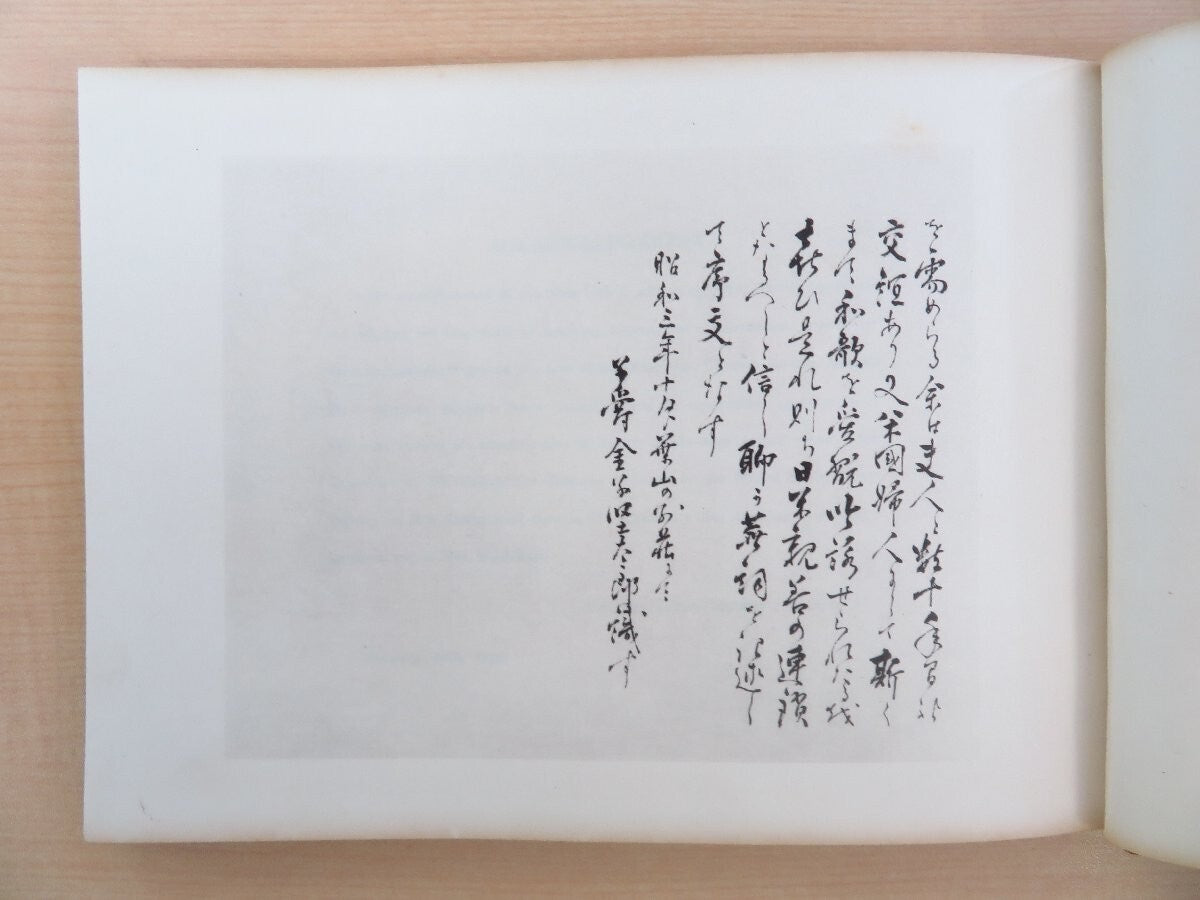 を需めらる余は夫人と数十年間の
交誼あり又米國婦人にして斯く
まで和歌を愛翫吟詠せられたるを
喜ひ是れ則ち日米親善の連鎖
となるへしと信し聊か蕪詞を記述し
て序文となす
昭和三年十月葉山の別荘にて
子爵金子堅太郎識す